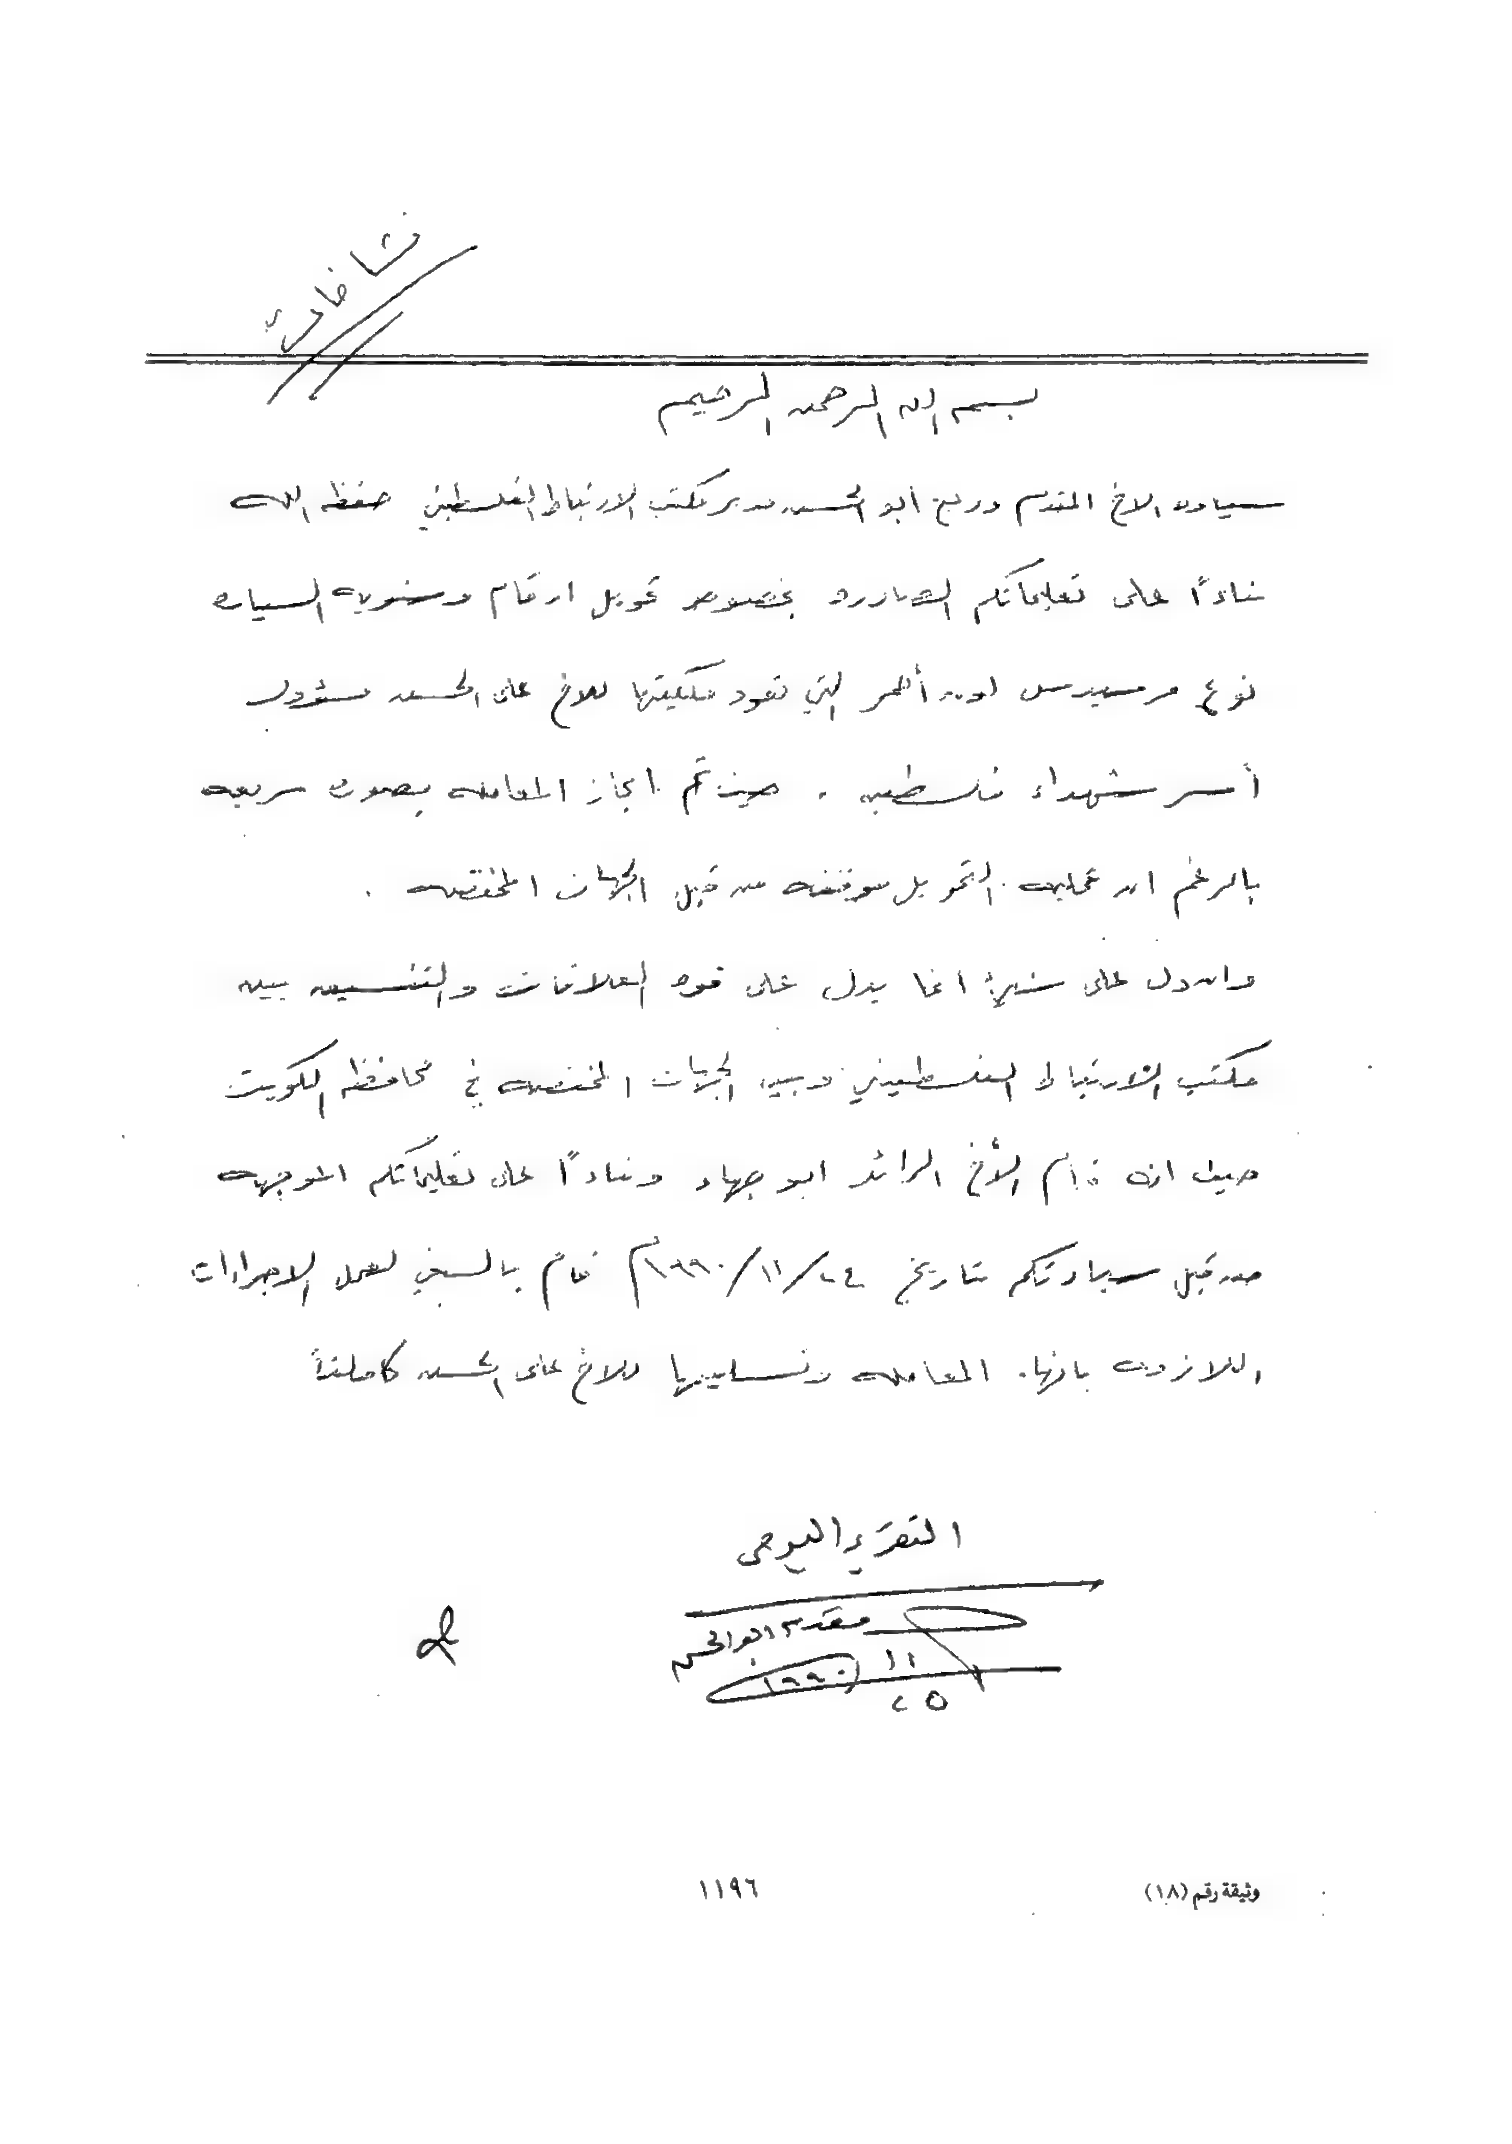 بسم الله الرحمن الرحيم
سيادة الاخ المقدم ابو الحسن مدير مكتب الارتباط الفلسطيني حفظه الله
بناءاً على تعليماتكم الصادره بخصوص تحويل ارقام وسنويه السياره
نوع مرسيدس لون أحمر التي تعود ملكيتها للاخ على الحسن مسؤول
أسر شهداء فلسطين . حيث تم انجاز المعامله بصوره سريعه
بالرغم ان عمليه التحويل موقفه من قبل الجهات المختصه .
وان دل على شيئ انما يدل على قوه العلاقات والتنسيق بين
مكتب الارتباط الفلسطيني وبين الجهات المختصه في محافظه الكويت
حيث انه قام الأخ الرائد ابو جهاد وبناءاً على تعليماتكم الموجهه
من قبل سيادتكم بتاريخ ٢٤/١١/١٩٩٠م قام بالسعي لعمل الاجراءات
اللازمه بانهاء المعامله وتسليمها للاخ على الحسن كاملتاً
التقرير اليومي
مقدم ابو الحسن
١١
١٩٩٠
٢٥
وثيقة رقم (١٨)
١١٩٦